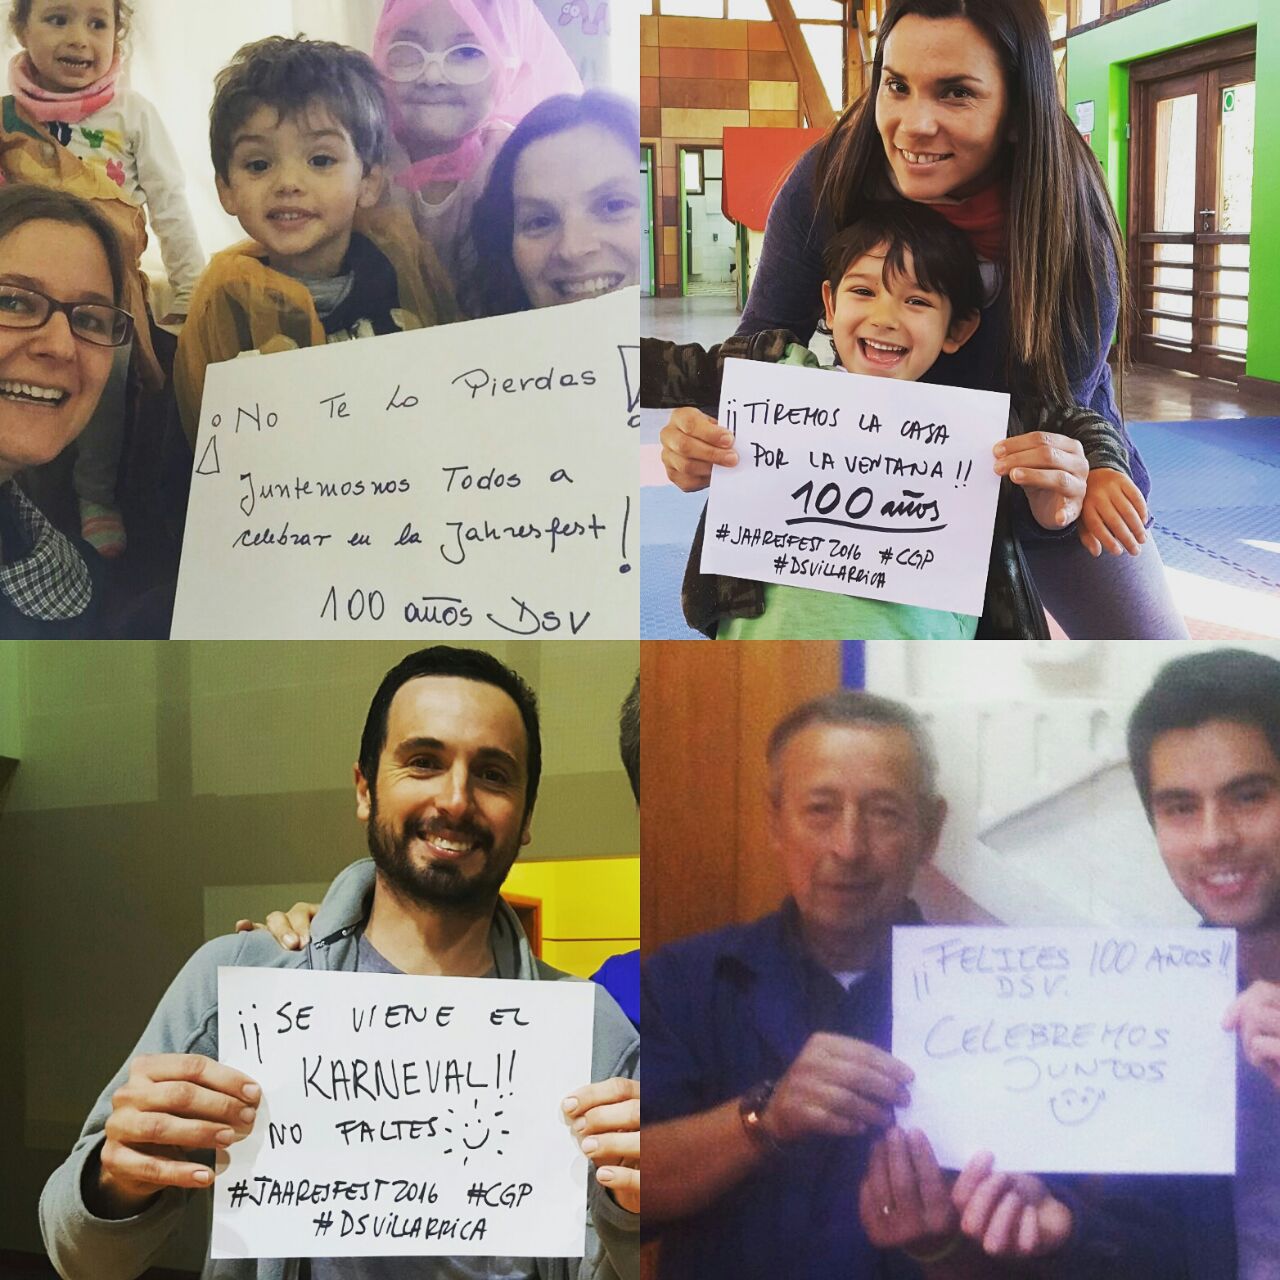 ¡No Te Lo Pierdas!
Juntemosnos Todos a
celebrar en la Jahresfest!
100 años DSV
¡¡TIREMOS LA CASA
POR LA VENTANA!!
100 años
#JAARESFEST2016 #CGP
#DSVILLARRICA
¡¡SE VIENE EL
KARNEVAL!!
NO FALTES
#JAARESFEST2016 #CGP
#DSVILLARRICA
¡¡FELICES 100 AÑOS!!
DSV.
CELEBREMOS
JUNTOS